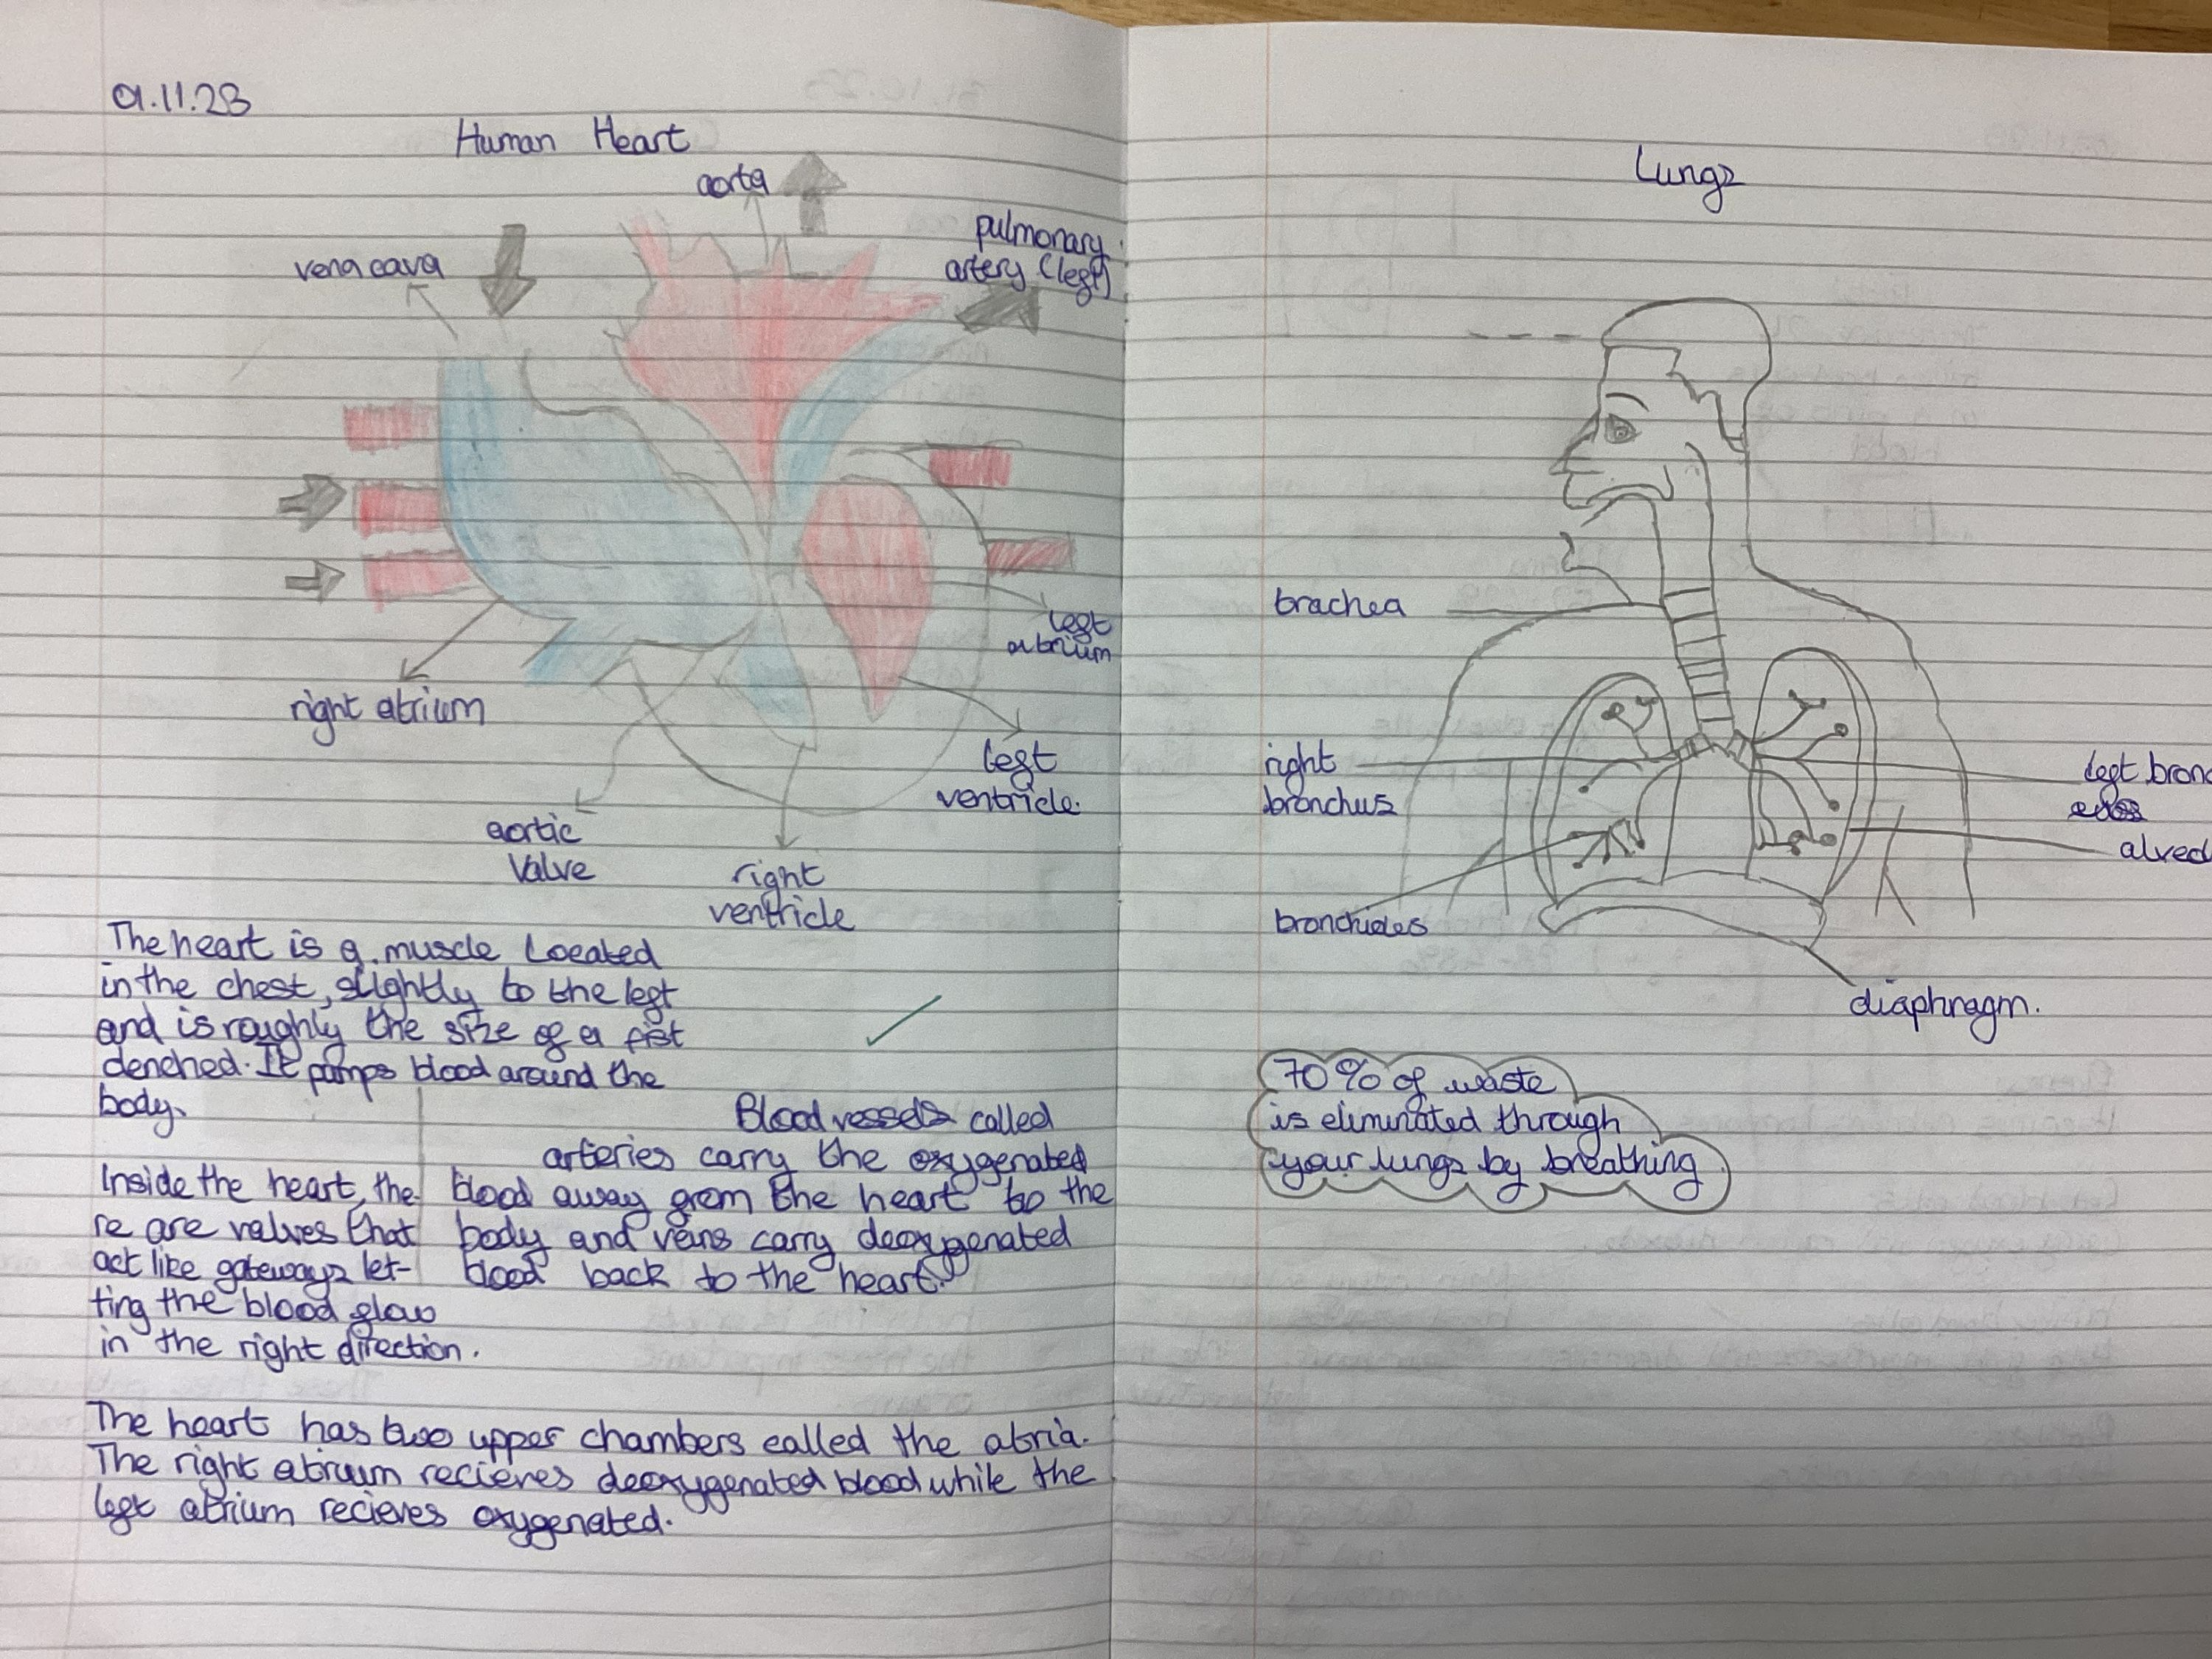 9.11.23
Human Heart
aorta
pulmonary
artery (left)
vena cava
left
atrium
right atrium
left
ventricle.
aortic
Valve
right
ventricle
The heart is a muscle Located
in the chest, slightly to the left
and is roughly the size of a fist
clenched. It pumps blood around the
body.
Inside the heart, the
re are valves that
act like gateways let-
ting the blood flow
in the right direction.
Blood vessels called
arteries carry the oxygenated
blood away from the heart to the
body and veins carry deoxygenated
blood back to the heart.
The heart has two upper chambers called the atria.
The right atrium recieves deoxygenated blood while the
left atrium recieves oxygenated.
Lungs
trachea
right
bronchus
left bronc
alveol
bronchioles
diaphragm.
70% of waste
is eliminated through
your lungs by breathing